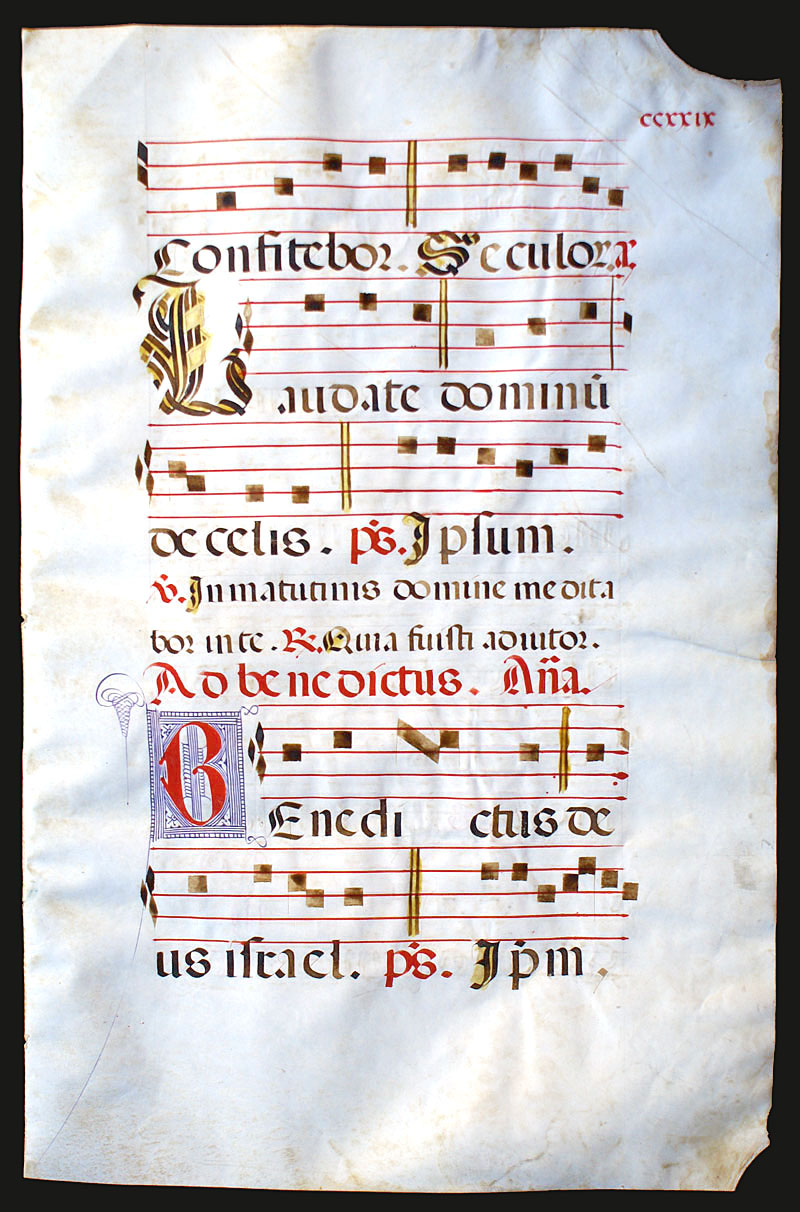 ccxxix
Confitebor. Seculor. a.
Laudate dominū
de celis. ps. Ipsum.
V. In matutinis domine medita
bor in te. R. Quia fuisti adiutor.
Ad benedictus. Aña.
BEnedi ctus de
us israel. ps. Ipm.